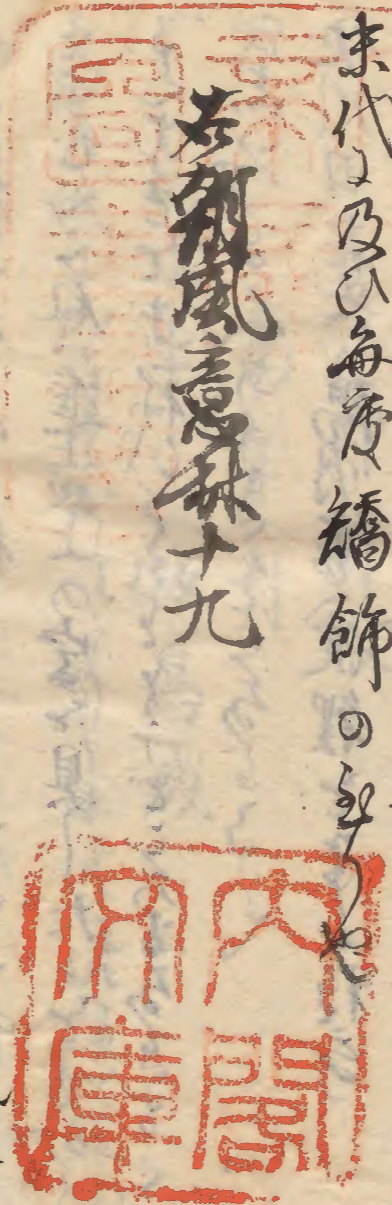 末代に及ひ毎度矯飾の至り也
右朝風意林十九
内閣文庫